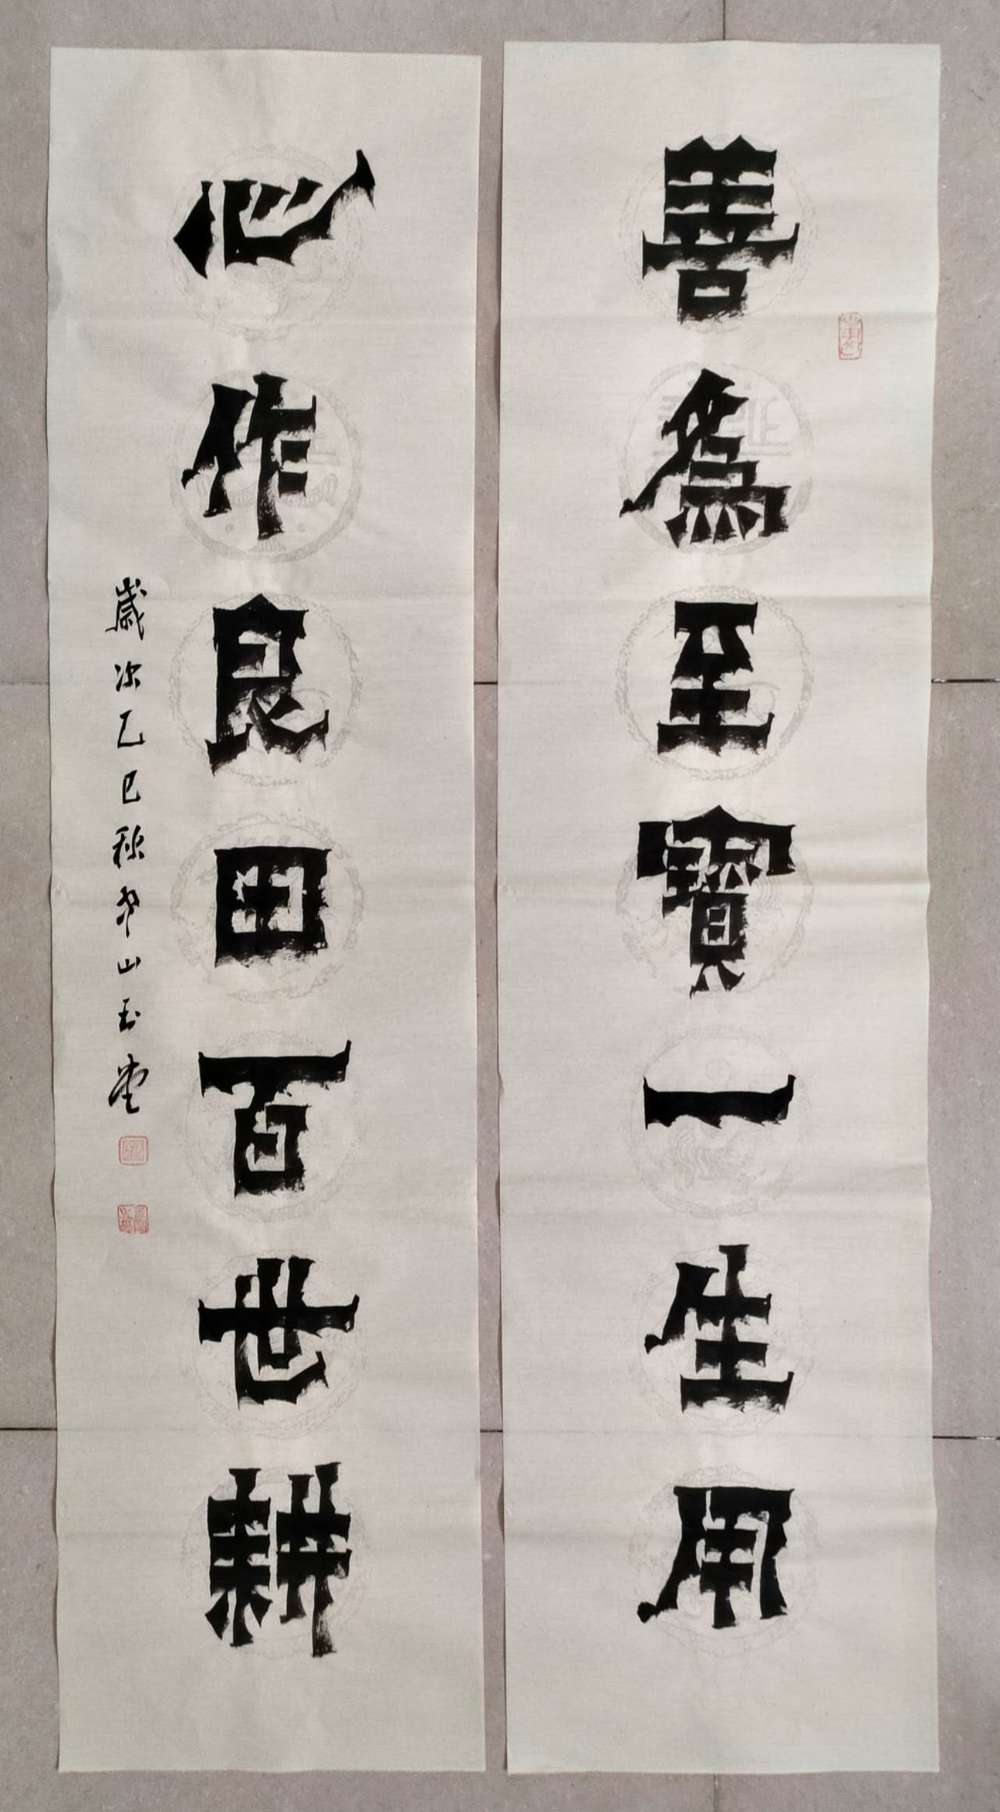 善爲至寶一生用
心作良田百世耕
歲次乙巳秋

山玉堂